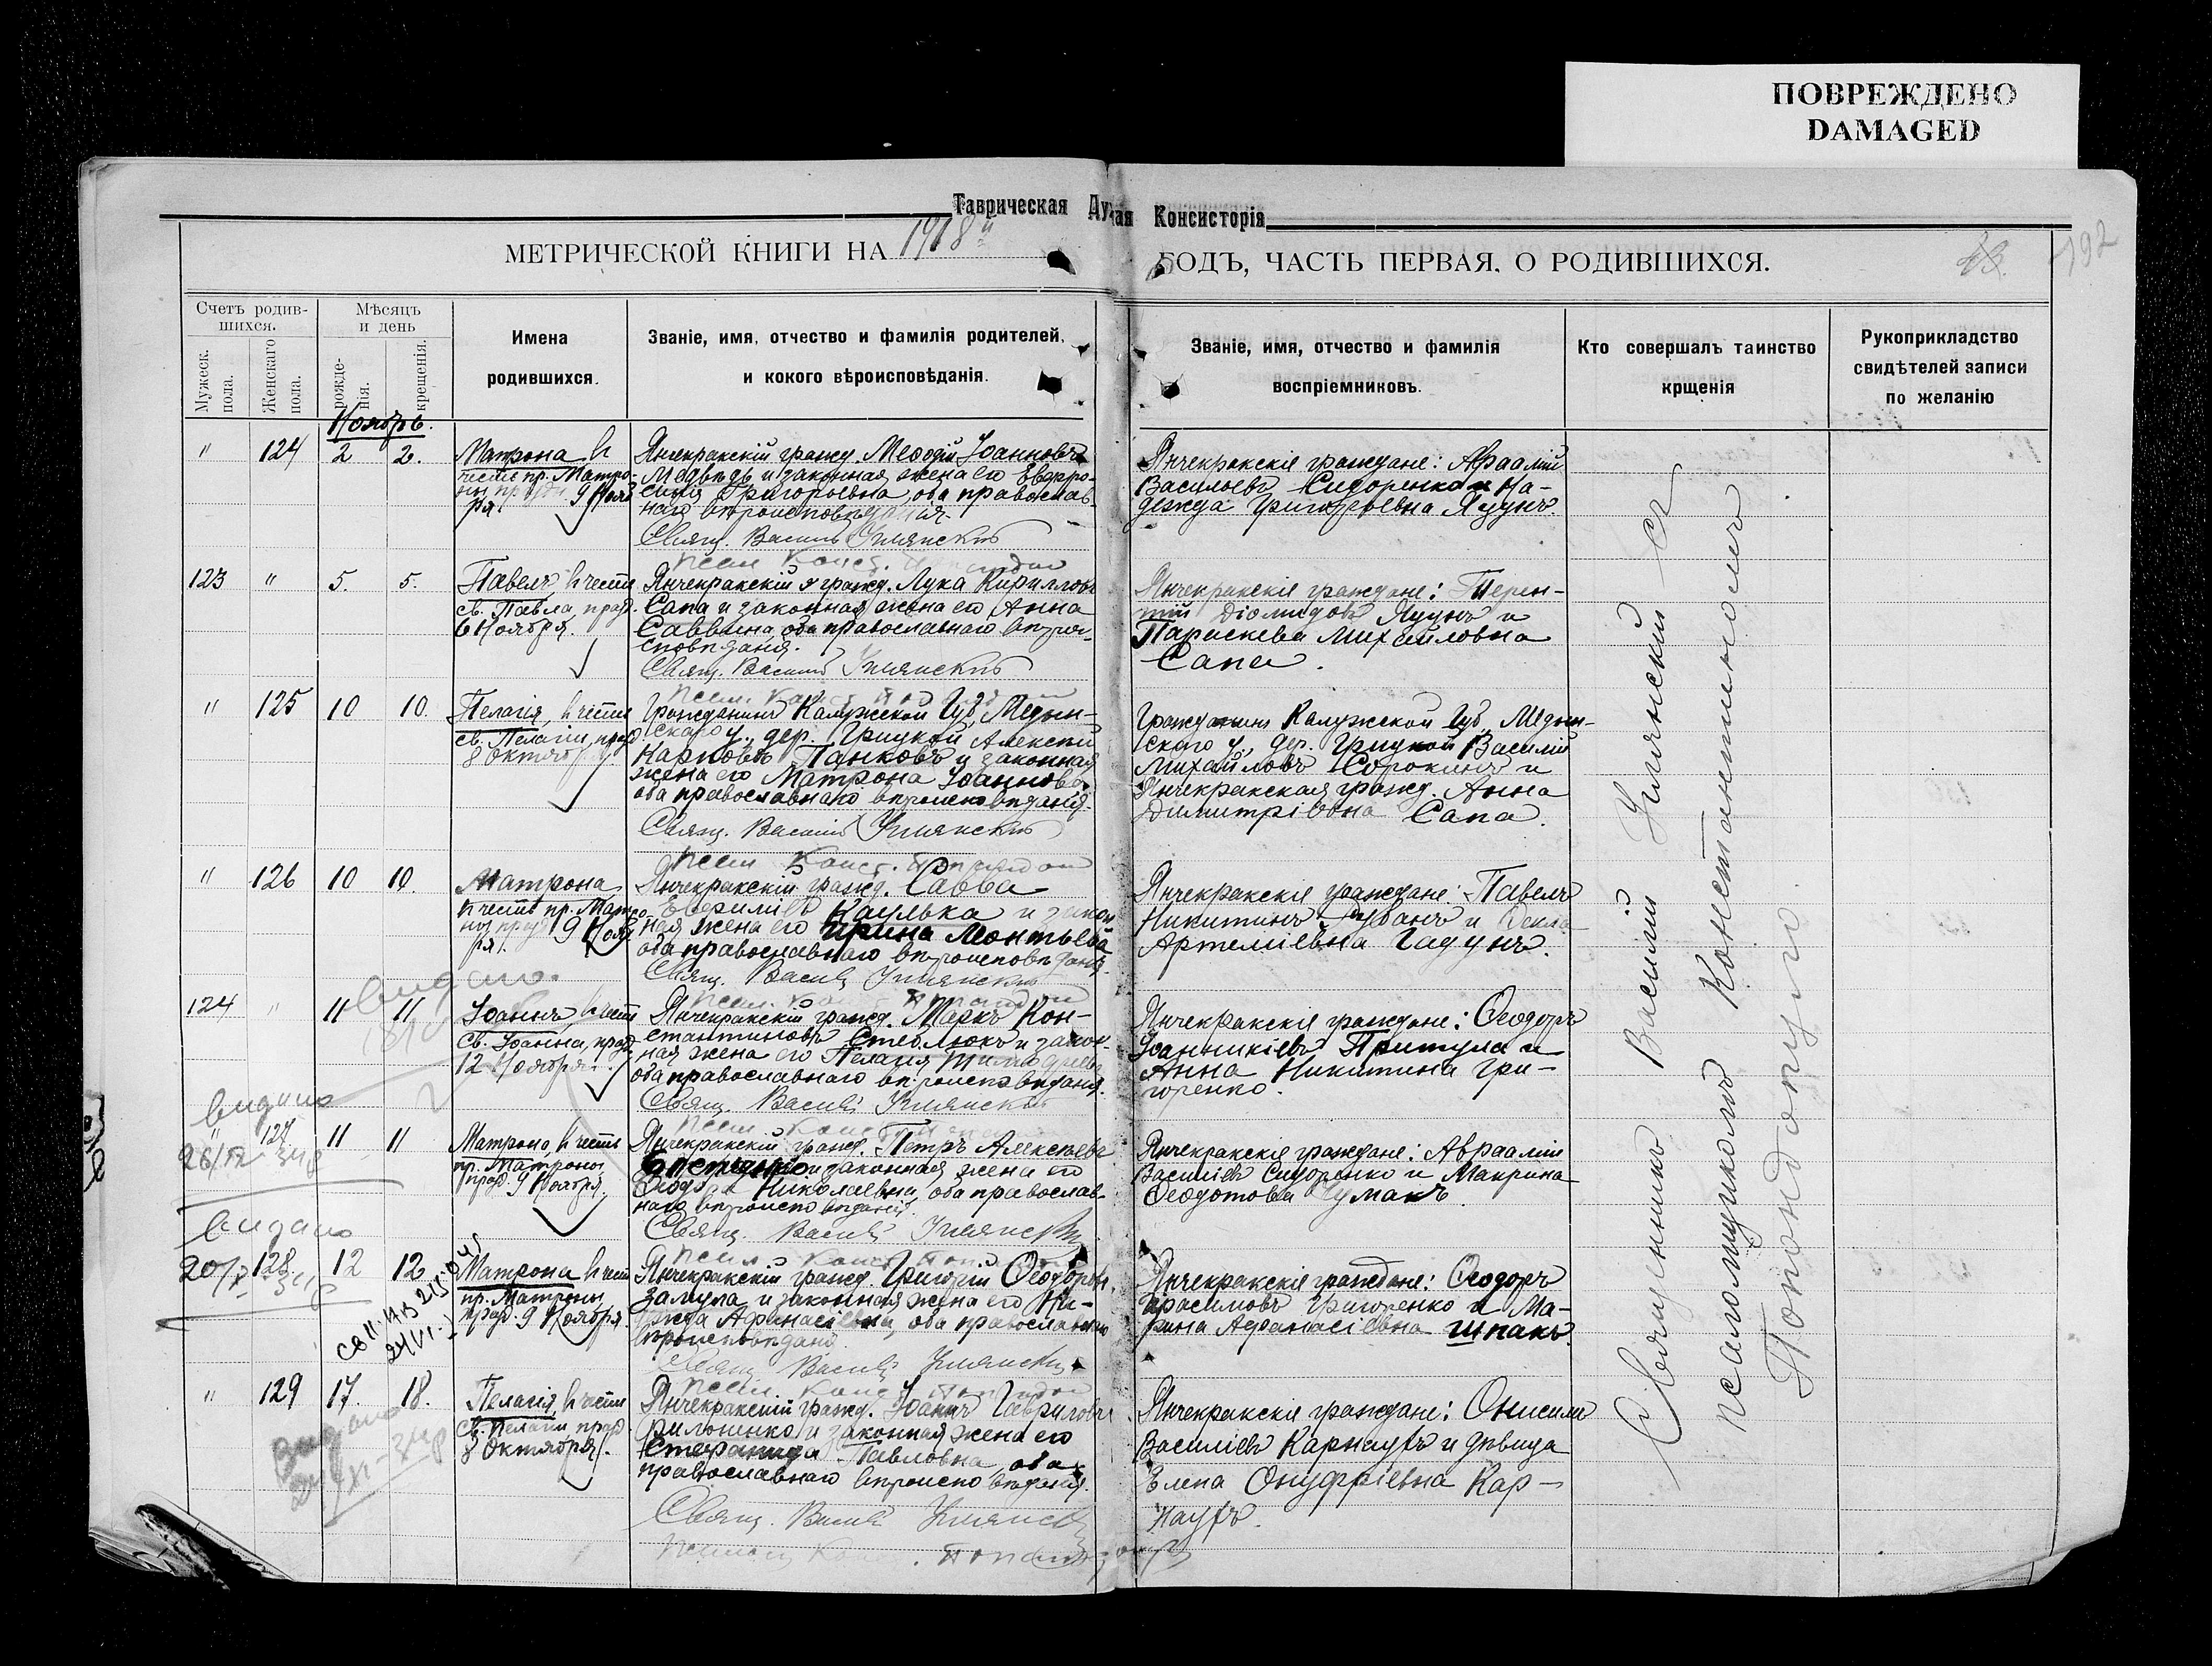 ПОВРЕЖДЕНО
DAMAGED
Таврическая Ду
ая Консисторія
МЕТРИЧЕСКОЙ КНИГИ НА 1918й
ГОДЪ, ЧАСТЬ ПЕРВАЯ, О РОДИВШИХСЯ.
192
Счетъ родив-
шихся.
Мужеск.
пола.
Женскаго
пола.
Мѣсяцъ
и день
рожде-
нія.
крещенія.
Имена
родившихся.
Званіе, имя, отчество и фамилія родителей,
и кокого вѣроисповѣданія.
Званіе, имя, отчество и фамилія
воспріемниковъ.
Кто совершалъ таинство
крщенія
Рукоприкладство
свидѣтелей записи
по желанію
Ноябрь.
" 124 2 2.
Матрона в
честь пр. Матро-
ны празд. 9 Нояб
ря
Янчекракскій гражд. Меѳодій Іоанновъ
Медвѣдь и законная жена его Евфро-
синія Григорьевна, оба православ-
наго вѣроисповѣданія.
Свящ. Василій Умянскій
Янчекракскіе граждане: Авраамій
Васильевъ Сидоренко и На-
дежда Григорьевна Яцунъ.
123 " 5. 5.
Павелъ, в честь
св. Павла, празд.
6 Ноября.
Янчекракскій гражд. Лука Кирилловъ
Сапа и законная жена его Анна
Саввина, оба православнаго вѣрои-
сповѣданія.
Свящ. Василій Умянскій
Янчекракскіе граждане: Терен-
тій Діомидовъ Яцунъ и
Параскева Михайловна
Сапа.
" 125 10 10.
Пелагія, в честь
св. Пелагіи, празд
8 Октября
Гражданинъ Калужской Губ. Медын-
скаго у., дер. Грицкой Алексій
Карповъ Панковъ и законная
жена его Матрона Іоаннова,
оба православнаго вѣроисповѣданія.
Свящ. Василій Умянскій
Гражданинъ Калужской Губ. Медын-
скаго у., дер. Грицкой Василій
Михайловъ Сорокинъ и
Янчекракская гражд. Анна
Димитріевна Сапа.
" 126 10 10.
Матрона,
в честь пр. Матро-
ны празд 9 Нояб
ря.
Янчекракскій гражд. Савва
Евфиміевъ Каулька и закон
ная жена его Ирина Леонтьева
оба православнаго вѣроисповѣданія.
Свящ. Василій Умянскій
Янчекракскіе граждане: Павелъ
Никитинъ Рубанъ и Ѳекла
Артеміевна Гадунъ.
видано.
124 " 11 11
Іоаннъ, в честь
св. Іоанна, празд.
12 Ноября.
Янчекракскій гражд. Маркъ Кон-
стантиновъ Стеблюкъ и закон-
ная жена его Пелагія
оба православнаго вѣроисповѣданія.
Свящ. Василій Умянскій
Янчекракскіе граждане: Ѳеодоръ
Іоанникіевъ Притула и
Анна Никитина Гри-
горенко.
видано
" 127 11 11
Матрона, в честь
пр. Матроны,
празд 9 Ноября.
Янчекракскій гражд. Петръ Алексѣевъ
и законная жена его
Ѳеодора Николаевна, оба православ-
наго вѣроисповѣданія.
Свящ. Василій Умянскій
Янчекракскіе граждане: Авраамій
Василіевъ Сидоренко и Макрина
Ѳеодотова Чумакъ.
видано
128. 12 12
Матрона в чест
пр. Матроны
празд. 9 Ноября.
Янчекракскій гражд. Григорій Ѳеодоров.
Замула и законная жена его На-
дежда Афанасіевна, оба православнаго
вѣроисповѣдан.
Свящ. Василій Умянскій
Янчекракскіе граждане: Ѳеодоръ
Герасимовъ Григоренко и Ма-
рина Афанасіевна Шпакъ.
" 129 17. 18.
Пелагія, в честь
св. Пелагіи празд
8 Октября.
Янчекракскій гражд. Іоаннъ Гавриловъ
Филоненко и законная жена его
Стефанида Павловна, оба
православнаго вѣроисповѣданія.
Свящ. Василій Умянскій
Янчекракскіе граждане: Онисимъ
Василіевъ Карнаухъ и дѣвица
Елена Онуфріевна Кар-
наухъ.
Видано
Священникъ Василій Умянский съ
псаломщикомъ Константиномъ
Попондопуло.